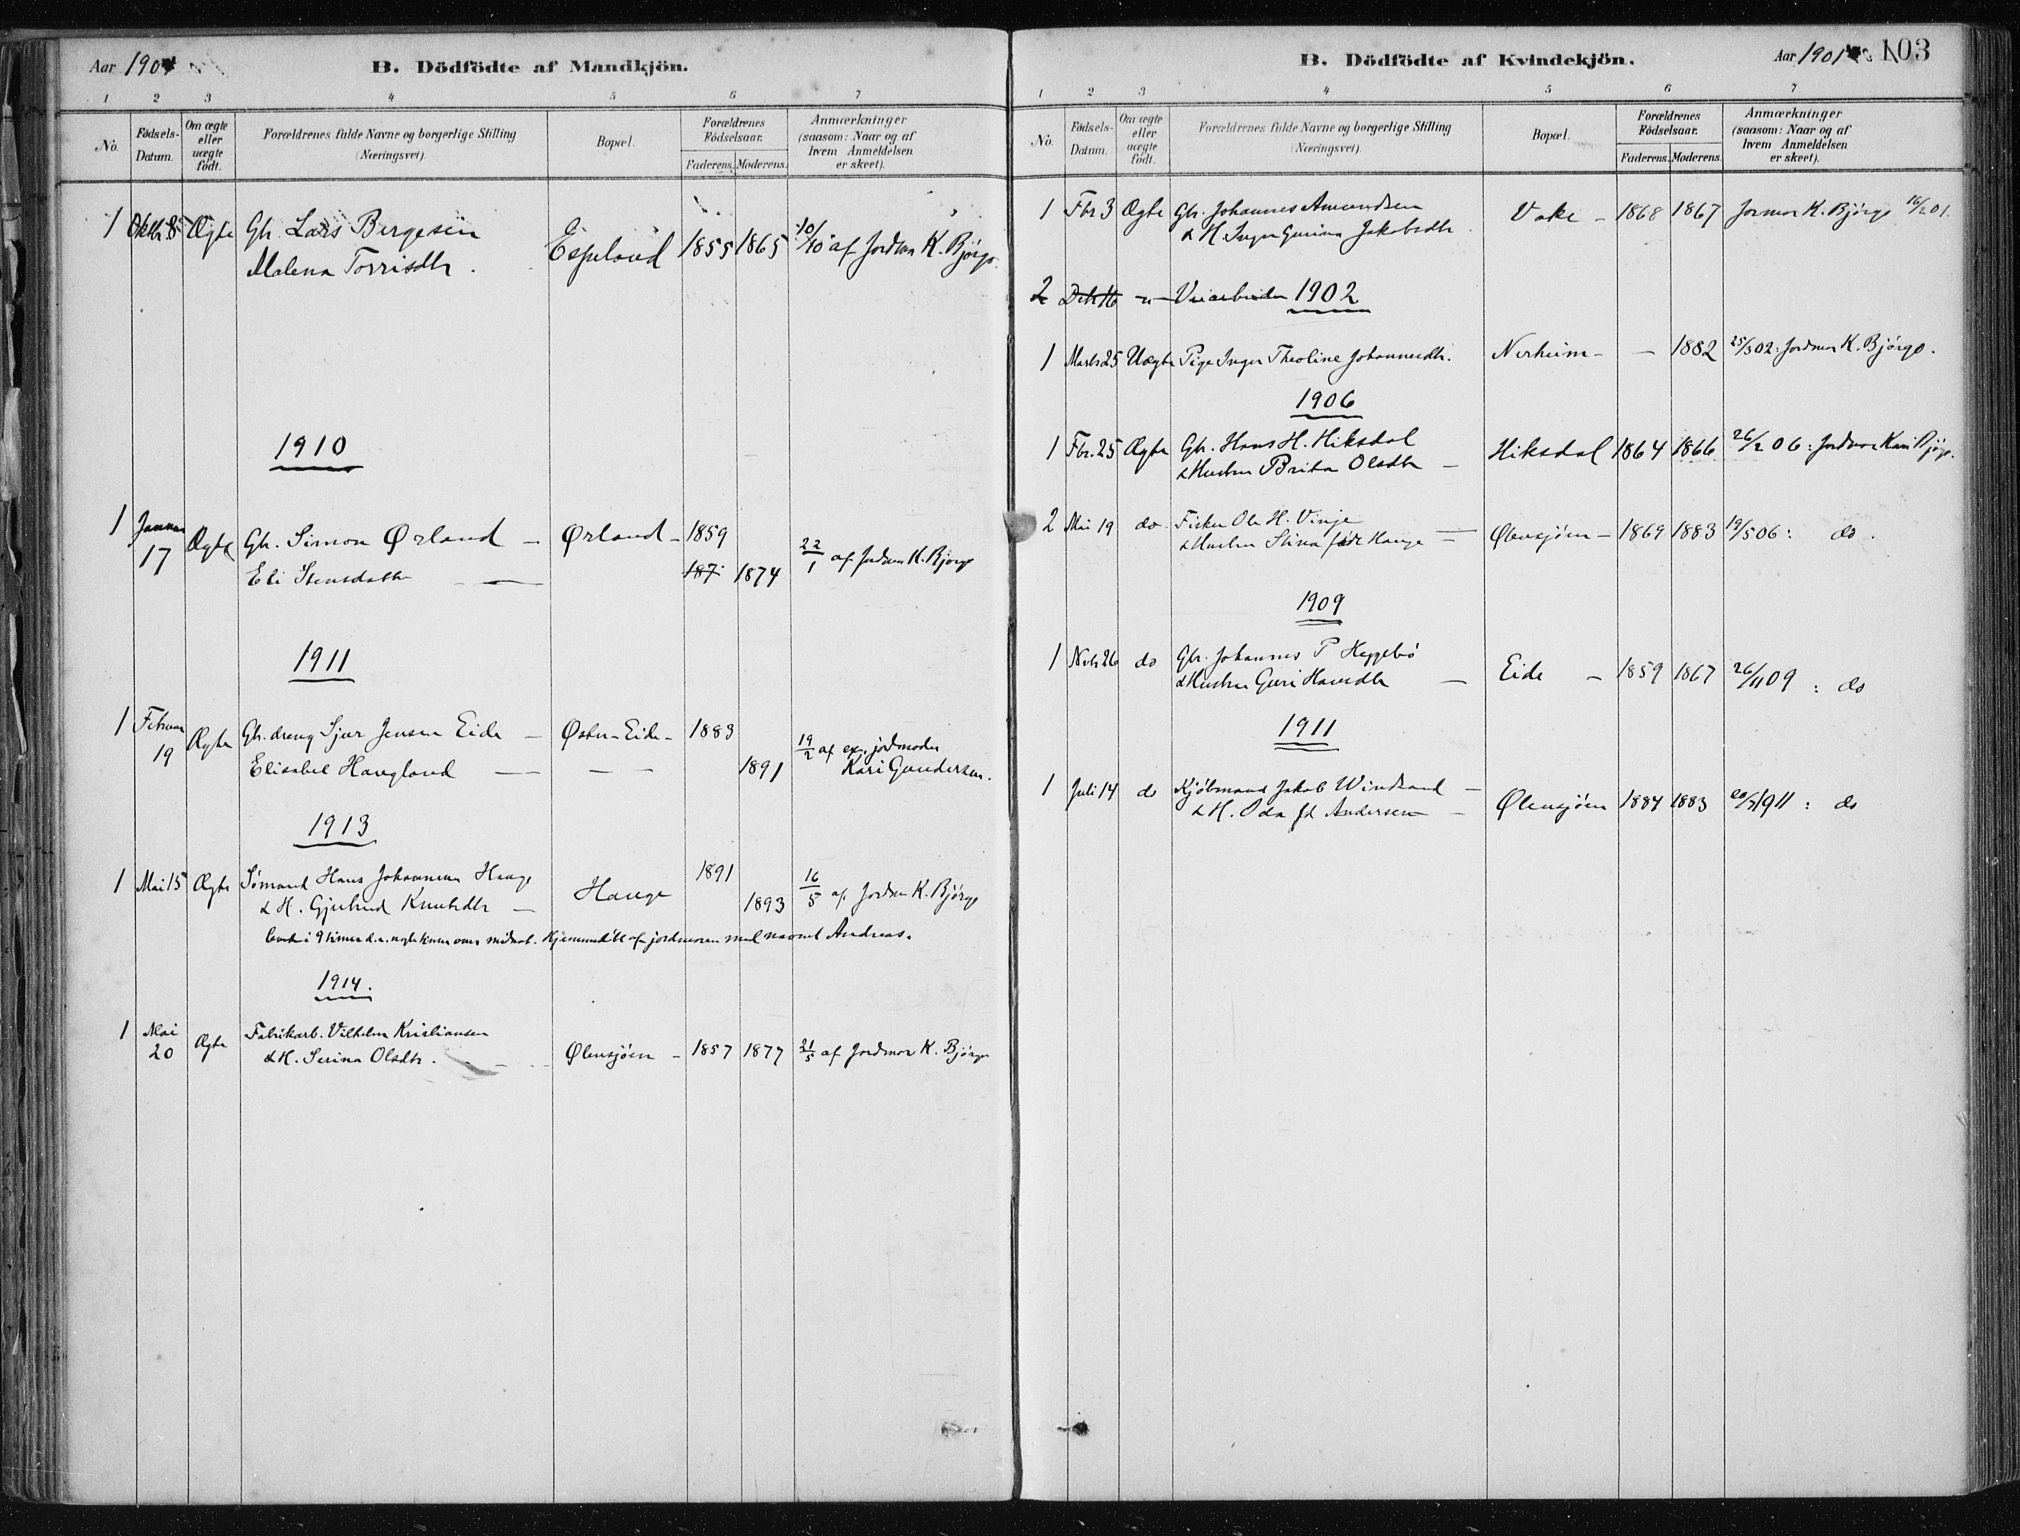 Aar 1904
B. Dödfödte af Mandkjön.
1 2 3 4 5 6 7
No.
Födsels-Datum.
Om ægte eller uægte födt.
Forældrenes fulde Navne og borgerlige Stilling
(Næringsvei).
Bopæl.
Forældrenes Födselsaar.
Faderens. Moderens.
Anmærkninger
(saasom: Naar og af
hvem Anmeldelsen
er skeet).
1 Oktb. 8 Ægte Gb. Lars Bergesen
Malena Torrisdtr. Espeland 1855 1865 10/10 af Jordmor K. Bjørge
1910
1 Januar 17 Ægte Gb. Simon Ørland – Ørland – 1859
Eli Stensdatter 187 1874 22/1 af Jordmor K. Bjørge
1911
1 Februar 19 Ægte Gb. dreng Sjur Jensen Eide – Østre-Eide – 1883
Elisabet Haugland — — 1891 19/2 af ex. jordmoder
Kari Gundersen.
1913
1 Mai 15 Ægte Sømand Hans Johannesen Hauge
& H. Gjertrud Knutsdtr – Hauge 1891 1893 16/5 af Jordmor K. Bjørge
levede i 9 timer d.e. nogle timer over midnat. Hjemmedøbt af jordmoren med navnet Andreas.
1914.
1 Mai 20 Ægte Fabrikarb. Vilhelm Kristiansen
& H. Serina Olsdtr. Ølensjøen – 1857 1877 21/5 af Jordmor K. Bjørge
B. Dödfödte af Kvindekjön.
Aar 1901
103
1 2 3 4 5 6 7
No.
Födsels-Datum.
Om ægte eller uægte födt.
Forældrenes fulde Navne og borgerlige Stilling
(Næringsvei).
Bopæl.
Forældrenes Födselsaar.
Faderens. Moderens.
Anmærkninger
(saasom: Naar og af
hvem Anmeldelsen
er skeet).
1 Fbr 3 Ægte Gb. Johannes Amundsen
& H. Inger Gurina Jakobsdtr. Vake – 1868 1867 Jormor K. Bjørge 16/2 01.
2 Dcb 16 –"– Veiarbeider 1902
1 Marts 25 Uægte Pige Inger Theoline Johannesdtr. Nerheim – – 1882 25/3 02. Jordmor K. Bjørge.
1906
1 Fbr. 25 Ægte Gb. Hans H. Hiksdal
& Hustru Brita Olsdtr – Hiksdal 1864 1866 26/2 06: Jordmor Kari Bjørge.
2 Mai 19 do Fisker Ole H. Vinje
& Hustru Stina født Hauge – Ølensjøen – 1869 1883 19/5 06: do.
1909
1 Novb 26 do Gb. Johannes P Heggebø
& Hustru Guri Hansdtr – Eide – 1859 1867 26/11 09: do
1911
1 Juli 14 do Kjøbmand Jakob Windsand –
& H. Oda fd Andersen – Ølensjøen 1884 1883 20/7 1911: do